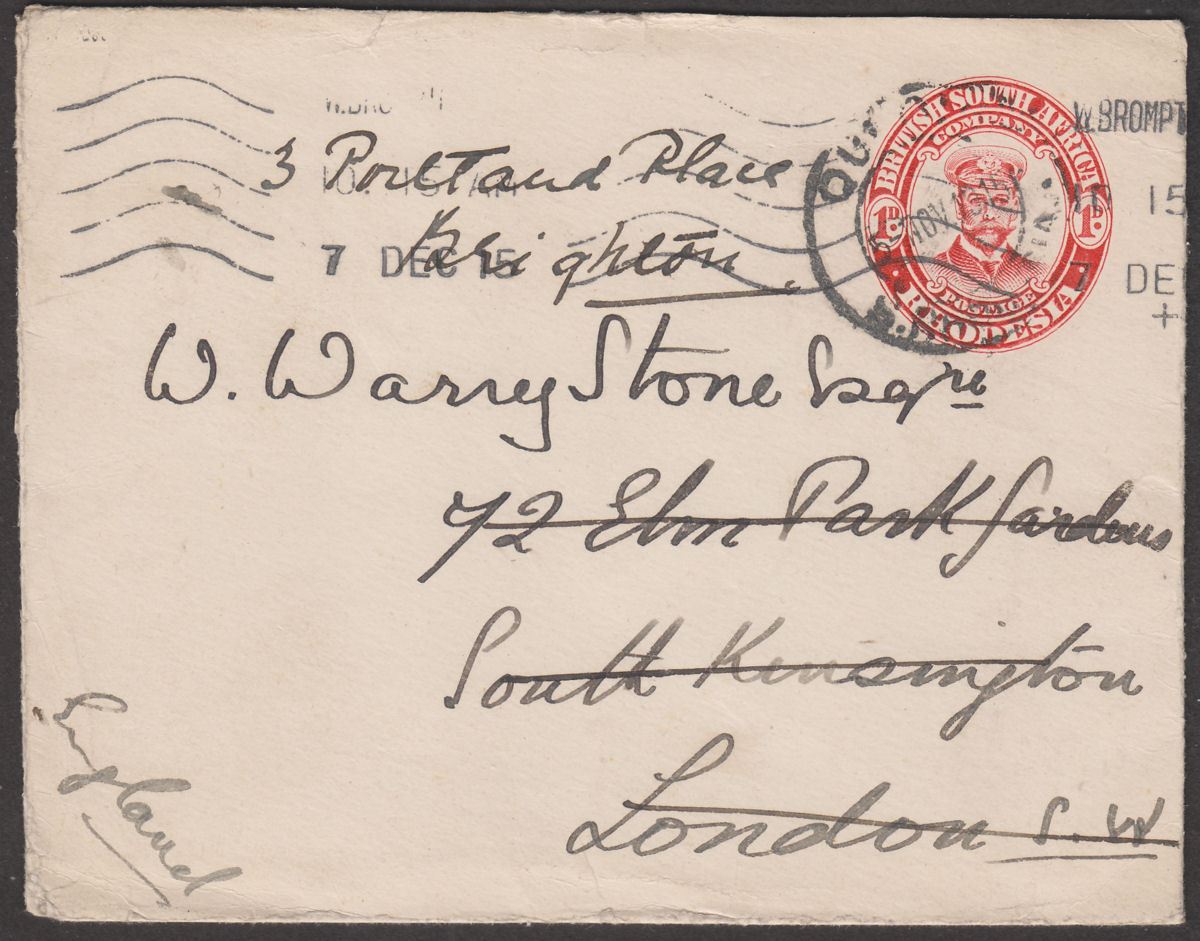 W.BRO
3 Portland Place
10 15 AM
Brighton
7 DEC 15
BRITISH SOUTH AFRICA
COMPANY
1D. 1D.
POSTAGE
RHODESIA
10
W.BROMPT
10 15
7 DE
+
W. Warry Stone Esqre
72 Elm Park Gardens
South Kensington
London S.W
England